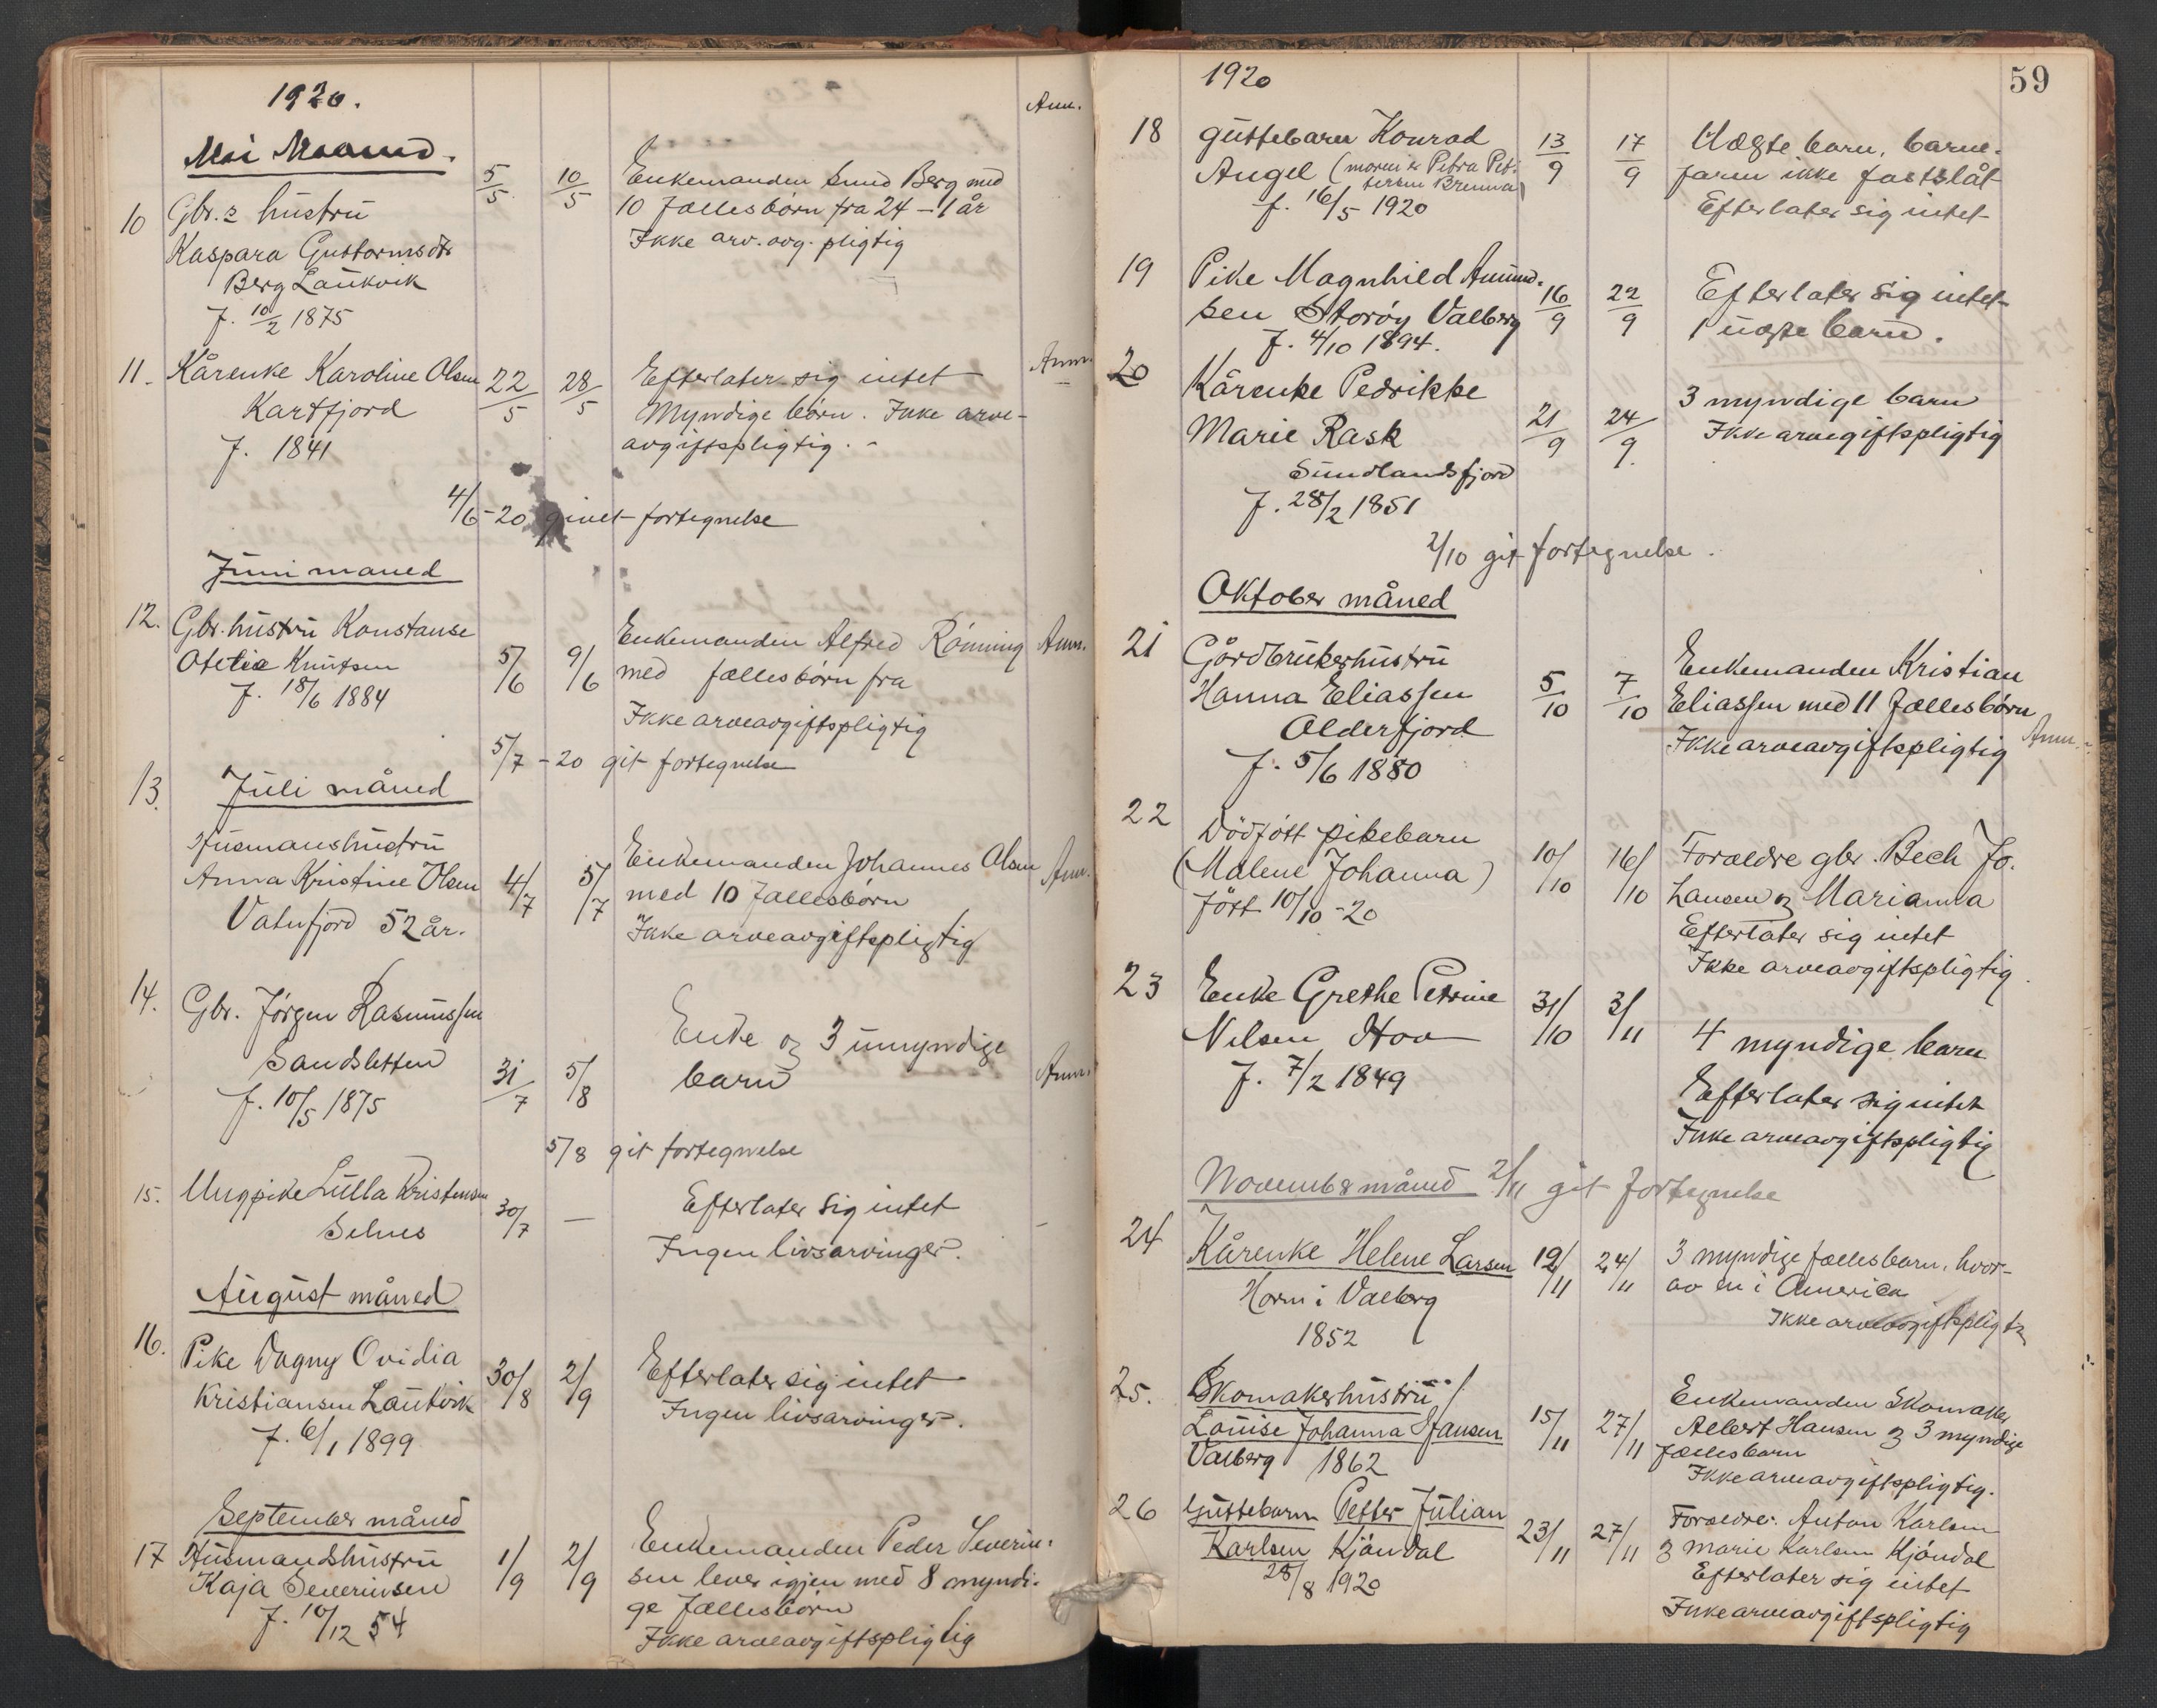 1920.
Anm.
Mai Maaned.
10 Gbr.s hustru 5/5 10/5 Enkemanden Lund Berg med
Kaspara Guttormsdtr 10 fællesbørn fra 24 – 1 år
Berg Laukvik Ikke arv. avg. pligtig
f. 10/2 1875
11. Kårenke Karoline Olsen 22/5 28/5 Efterlater sig intet Anm.
Kartfjord Myndige børn. Ikke arve-
f. 1841 avgiftspligtig. -
4/6-20 givet fortegnelse
Juni maaned
12. Gbr. hustru Konstanse Enkemanden Alfred Rönning Anm.
Otelie Knutsen 5/6 9/6 med fællesbörn fra
f. 18/6 1884 Ikke arveavgiftspligtig
5/7-20 git fortegnelse
13. Juli måned
Husmanshustru Enkemanden Johannes Olsen Anm.
Anna Kristine Olsen 4/7 5/7 med 10 fællesbörn
Vatnfjord 52 år. Ikke arveavgiftspligtig
14. Gbr. Jörgen Rasmussen Enke og 3 umyndige
Sandsletten 31/7 5/8 barn Anm.
f. 10/5 1875
5/8 git fortegnelse
15. Ungpike Lulla Kristensen 30/7 — Efterlater sig intet -
Selnes Ingen livsarvinger.
August måned
16. Pike Dagny Ovidia 30/8 2/9 Efterlater sig intet
Kristiansen Laukvik Ingen livsarvinger.
f. 6/1 1899
September måned
17 Husmandshustru 1/9 2/9 Enkemanden Peder Severin-
Kaja Severinsen sen lever igjen med 8 myndi-
f. 10/12 54 ge fællesbörn
Ikke arveavgiftspligtig
1920
59
18 Guttebarn Konrad 13/9 17/9 Uægte barn, barne-
Angel (moren er Petra Pet- faren ikke fastslåt
tersen Brenna) Efterlater sig intet
f. 16/5 1920
19 Pike Magnhild Amund- 16/9 22/9 Efterlater sig intet
sen Storöy Valberg 1 uægte barn.
f. 4/10 1894.
20 Kårenke Pedrikke 21/9 24/9. 3 myndige barn
Marie Rask Ikke arvegiftspligtig
Sundlandsfjord
f. 28/2 1851
2/10 git fortegnelse.
Oktober måned
21 Gårdbrukerhustru Enkemanden Kristian
Hanna Eliassen 5/10 7/10 Eliassen med 11 fællesbörn
Olderfjord Ikke arveavgiftspligtig Anm.
f. 5/6 1880
22 Dödföt pikebarn 10/10 16/10 Forældre gbr. Bech Jo-
(Malene Johanna) hansen og Marianna
föt 10/10-20 Efterlater sig intet
Ikke arveavgiftspligtig.
23 Enke Grethe Petrine 31/10 3/11 4 myndige barn
Nilsen Hov Efterlater sig intet
f. 7/2 1849 Ikke arveavgiftspligtig
November måned 2/11 git fortegnelse
24 Kårenke Helene Larsen 19/11 24/11 3 myndige fællesbarn, hvor-
Horn i Valberg av en i America
1852 Ikke arveavgiftspligtig
25. Skomakerhustru Enkemanden Skomaker
Louise Johanna Hansen 15/11 27/11 Albert Hansen og 3 myndige
Valberg 1862 fællesbarn
Ikke arveavgiftspligtig.
26 Guttebarn Petter Julian 23/11 27/11 Forældre: Anton Karlsen
Karlsen Kjöndal og Marie Karlsen Kjöndal
28/8 1920 Efterlater sig intet
Ikke arveavgiftspligtig